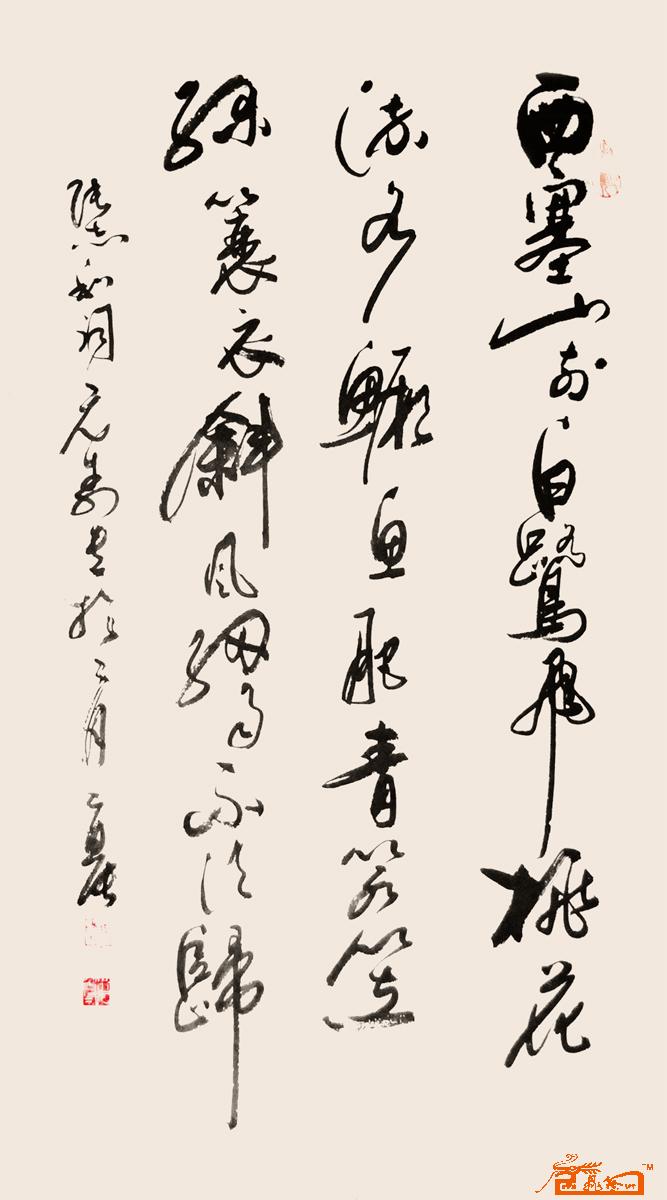 西塞山前白鷺飛桃花
流水鱖魚肥青箬笠
綠簑衣斜風細雨不須歸
張志和詞書於二月